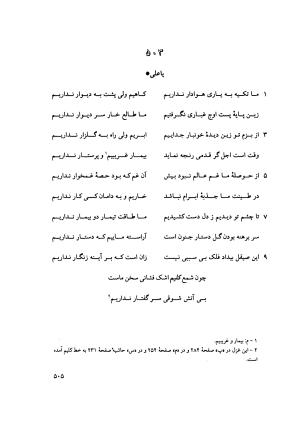 ۵۰۴
یاعلی●
۱ ما تکیه به یاری هوادار نداریم کاهیم ولی پشت به دیوار نداریم
زین پایهٔ پست اوج غباری نگرفتیم ما طالع خار سر دیوار نداریم
۳ از بزم تو زین دیدهٔ خونبار جداییم ابریم ولی راه به گلزار نداریم
وقت است اجل گر قدمی رنجه نماید بیمار غریبیم¹ و پرستار نداریم
۵ از حوصلهٔ ما غم عالم نبود بیش آن غم که بود حصهٔ غمخوار نداریم
در طینت ما جذبهٔ ابرام نباشد خاریم و به دامان کسی کار نداریم
۷ تا چشم تو دیدیم ز دل دست کشیدیم ما طاقت تیمار دو بیمار نداریم
سر برهنه بودن گل دستار جنون است آراسته ماییم که دستار نداریم
۹ این صیقل بیداد فلک بی سببی نیست زان است که بر آینه زنگار نداریم
چون شمع کلیم اشک فشانی سخن ماست
بی آتش شوقی سر گفتار نداریم²
۱ – م: بیمار و غریبیم.
۲ – این غزل در «پ» صفحهٔ ۲۸۲ و در «م» صفحهٔ ۲۵۲ و در «س» حاشیهٔ صفحهٔ ۲۳۱ به خط کلیم آمده
است.
۵۰۵